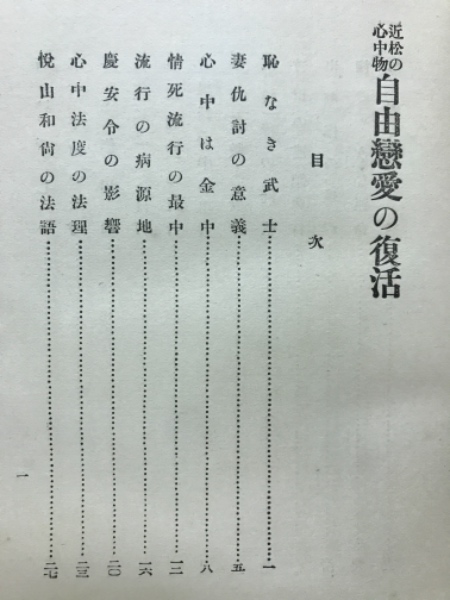 近松の心中物 自由戀愛の復活
目次
恥なき武士……一
妻仇討の意義……五
心中は金中……八
情死流行の最中……一二
流行の病源地……一六
慶安令の影響……二〇
心中法度の法理……二三
悅山和尙の法語……二七
一